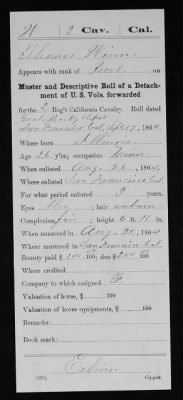 2 Cav. Cal.
Thomas
Appears with rank of on
Muster and Descriptive Roll of a Detach-
ment of U. S. Vols. forwarded
for the 2 Reg't California Cavalry. Roll dated
San Francisco Cal. Sept 19, 1864.
Where born Illinois
Age 26 y'rs; occupation Miner
When enlisted Aug. 26, 1864.
Where enlisted San Francisco Cal.
For what period enlisted 3 years.
Eyes ; hair auburn
Complexion Fair ; height 6 ft. in.
When mustered in Aug. 1864
Where mustered in San Francisco Cal
Bounty paid $ 100 100; due $ 200 100
Where credited
Company to which assigned
Valuation of horse, $ 100
Valuation of horse equipments, $ 100
Remarks:
Book mark:
Copyist.